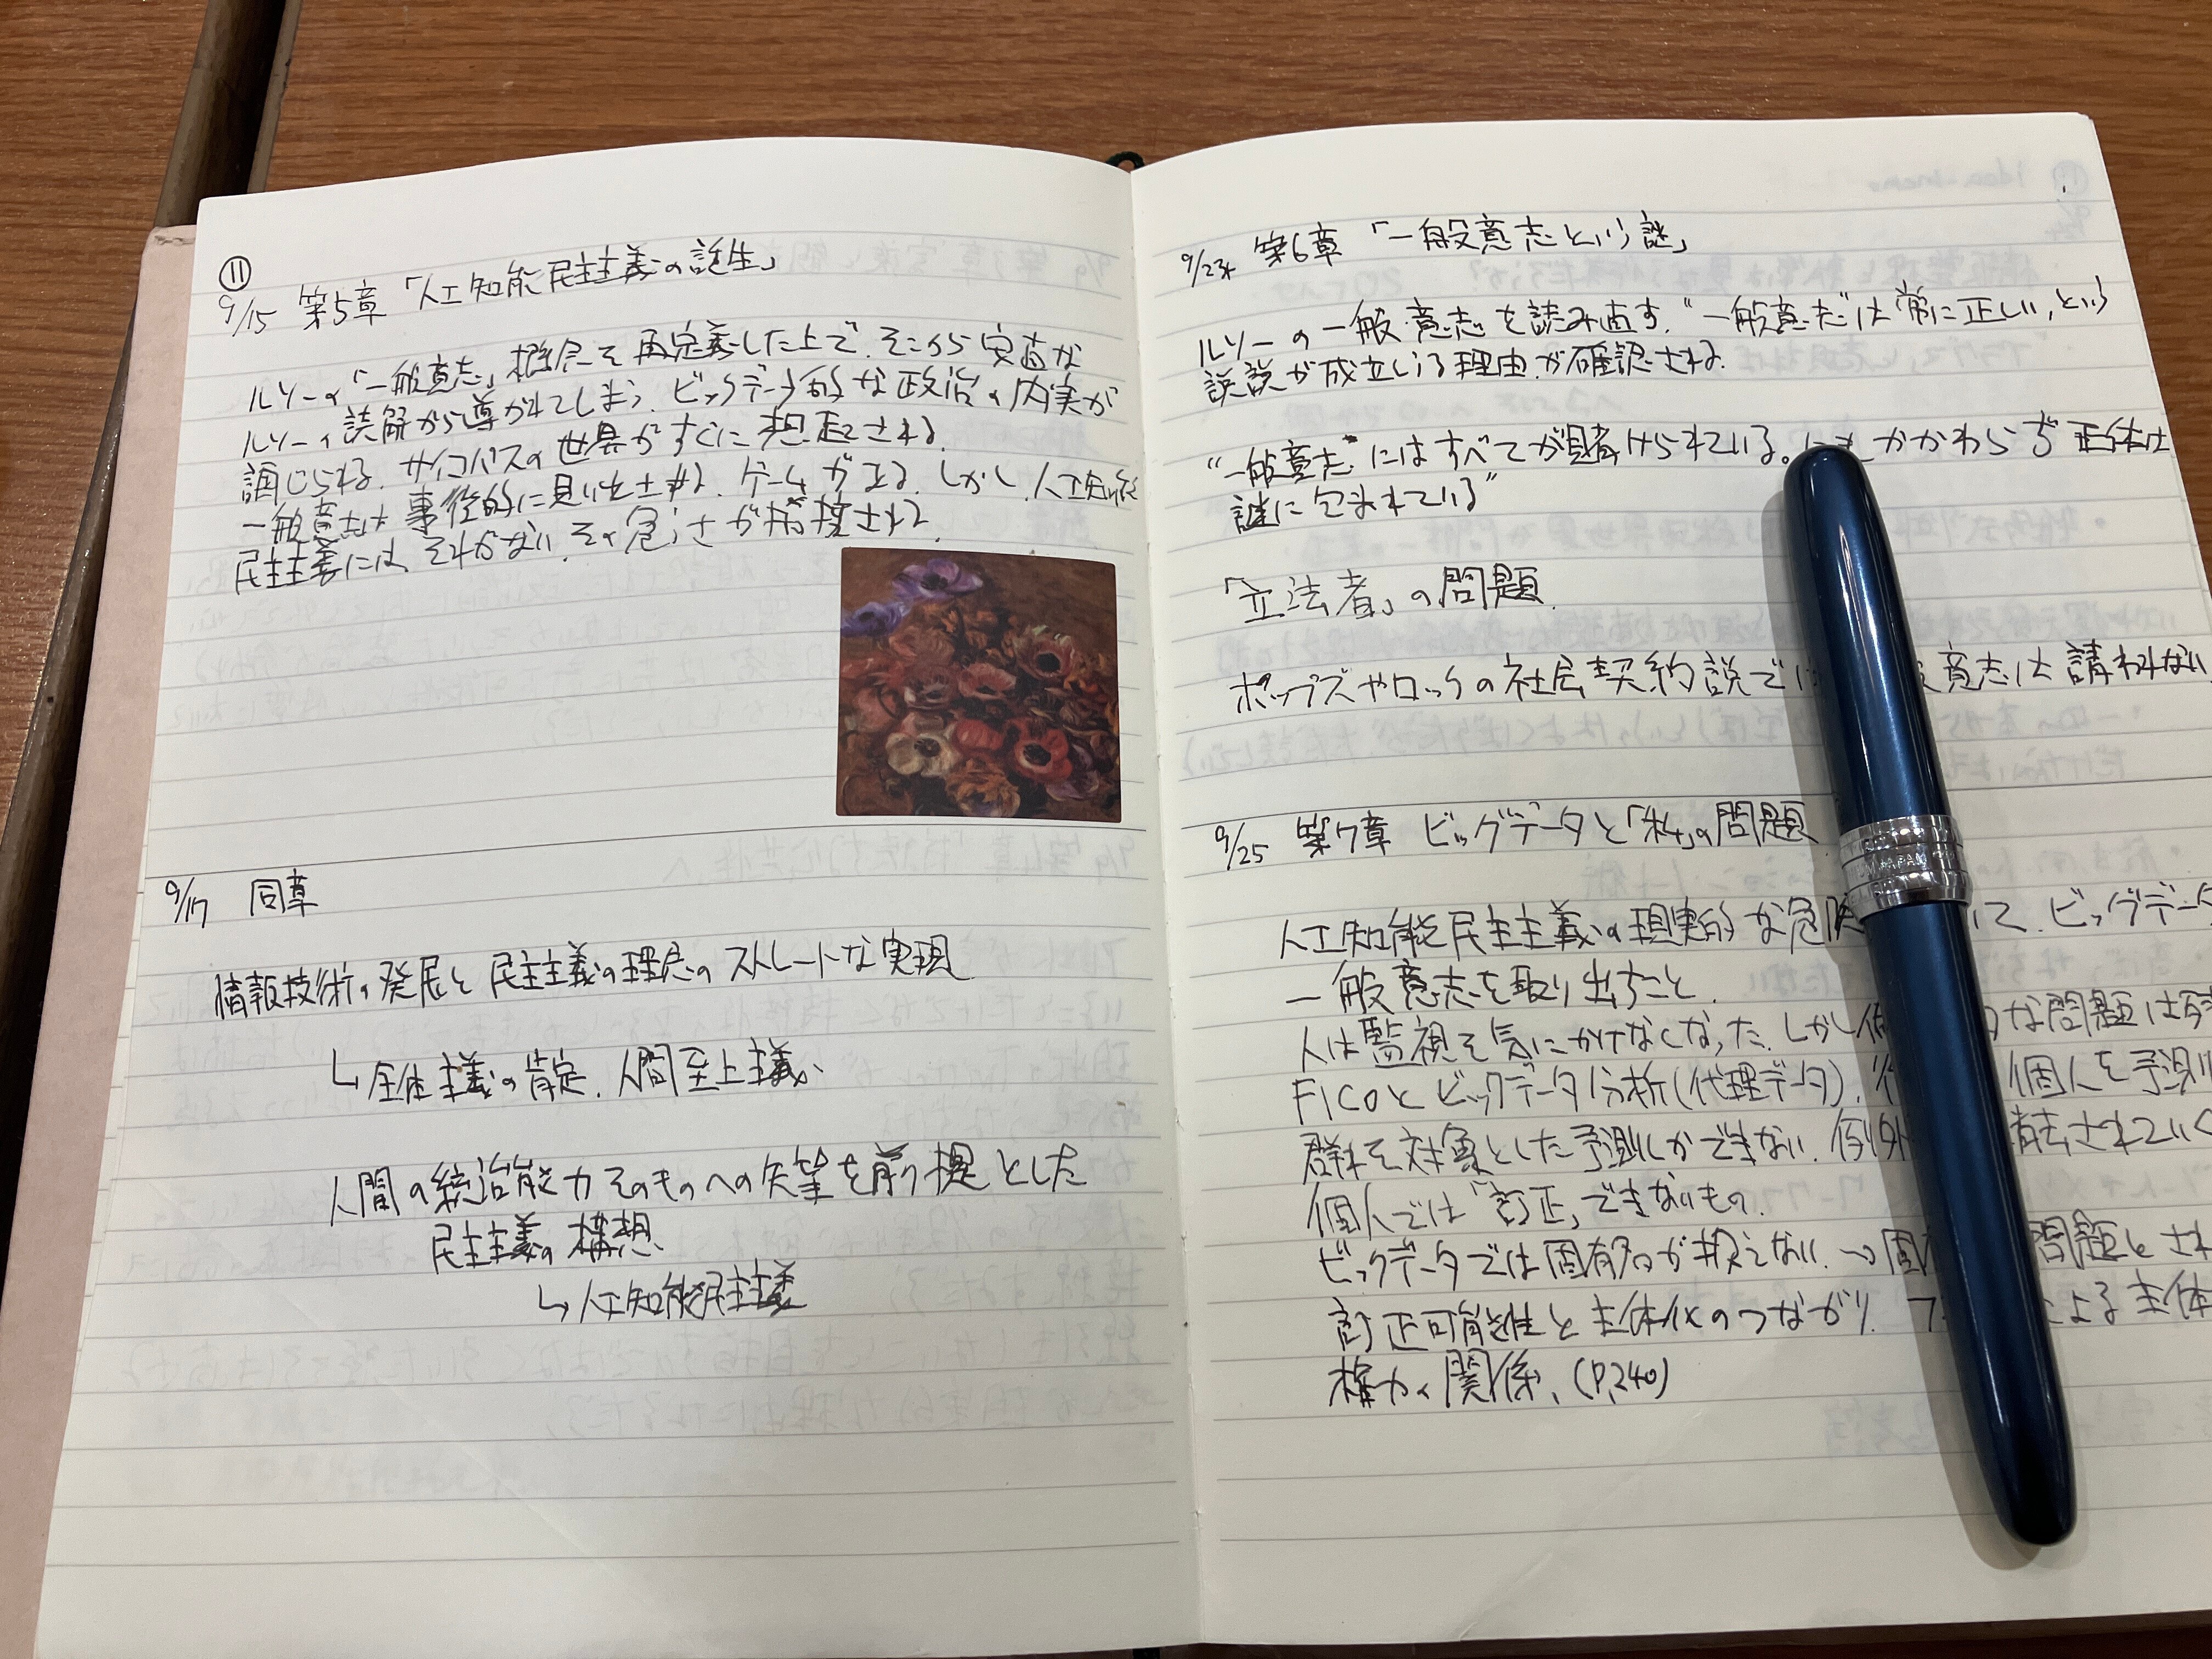 ⑪
9/15 第5章「人工知能民主主義の誕生」
ルソーの「一般意志」概念を再定義した上で、そこから安直な
ルソーの読解から導かれてしまう、ビックデータ的な政治の内実が
論じられる。サイコパスの世界がすぐに想起される。
一般意志は事後的に見い出される。ゲームがある。しかし、人工知能
民主主義には、それがない。その危うさが指摘される。
9/17 同章
情報技術の発展と民主主義の理念のストレートな実現
↳全体主義の肯定、人間至上主義
人間の統治能力そのものへの失望を前提とした
民主主義の構想
↳人工知能民主主義
9/23 第6章「一般意志という謎」
ルソーの一般意志を読み直す。"一般意志"は常に正しい、という
説が成立している理由が確認される。
"一般意志"にはすべてが賭けられている。にもかかわらず正体は
謎に包まれている"
「立法者」の問題
ホッブズやロックの社会契約説では 意志は請われない
9/25 第7章 ビッグデータと「私」の問題
人工知能民主主義の現実的な危険 して、ビッグデータ
一般意志を取り出すこと。
人は監視を気にかけなくなった。しかし な問題は残
FICOとビックデータ分析(代理データ)、 個人を予測
群れを対象とした予測しかできない。例外 消去されていく
個人では「訂正」できないもの。
ビックデータでは固有名が扱えない。→固 問題とされ
訂正可能性と主体化のつながり。フ による主体
権力の関係、(P,240)